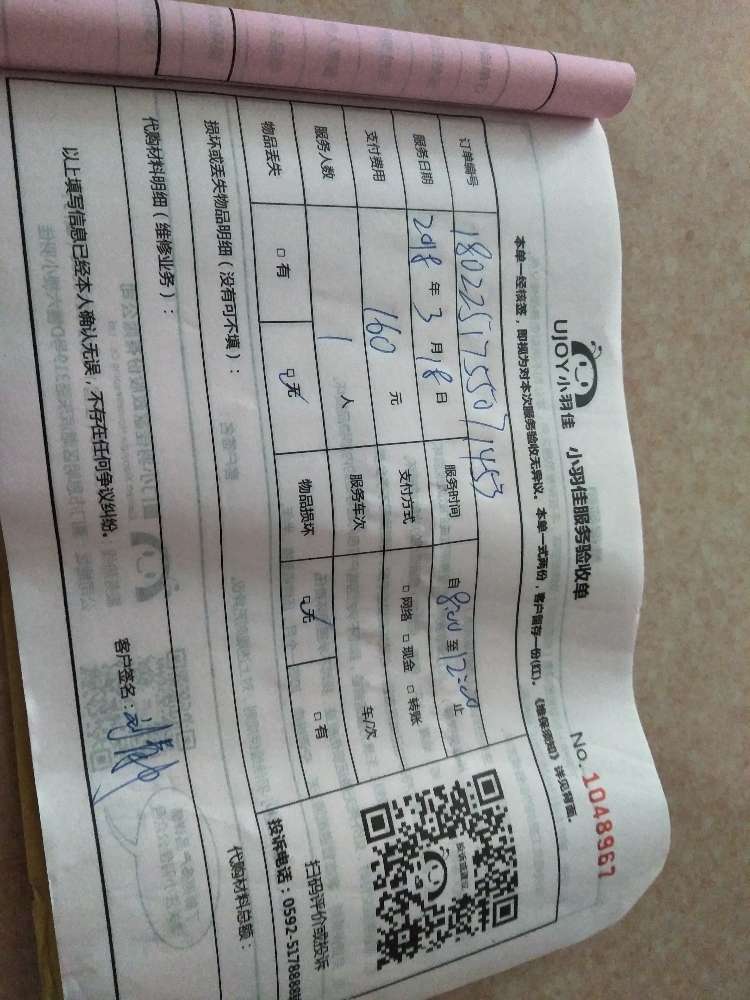 UJOY小羽佳 小羽佳服务验收单 No.1048967
本单一经核签，即视为对本次服务验收无异议。本单一式两份，客户留存一份(红)。《维保须知》详见背面。
订单编号 1802251755071453
服务日期 2018 年 3 月 18 日 服务时间 自 8:00 至 12:00 止
支付费用 160 元 支付方式 □ 网络 □ 现金 □ 转账
服务人数 1 人 服务车次 车/次
物品丢失 □ 有 ☑ 无 物品损坏 ☑ 无 □ 有
损坏或丢失物品明细（没有可不填）：
代购材料明细（维修业务）： 代购材料总额：
以上填写信息已经本人确认无误，不存在任何争议纠纷。
客户签名：
投诉或建议
扫码评价或投诉
投诉电话：0592-5178888